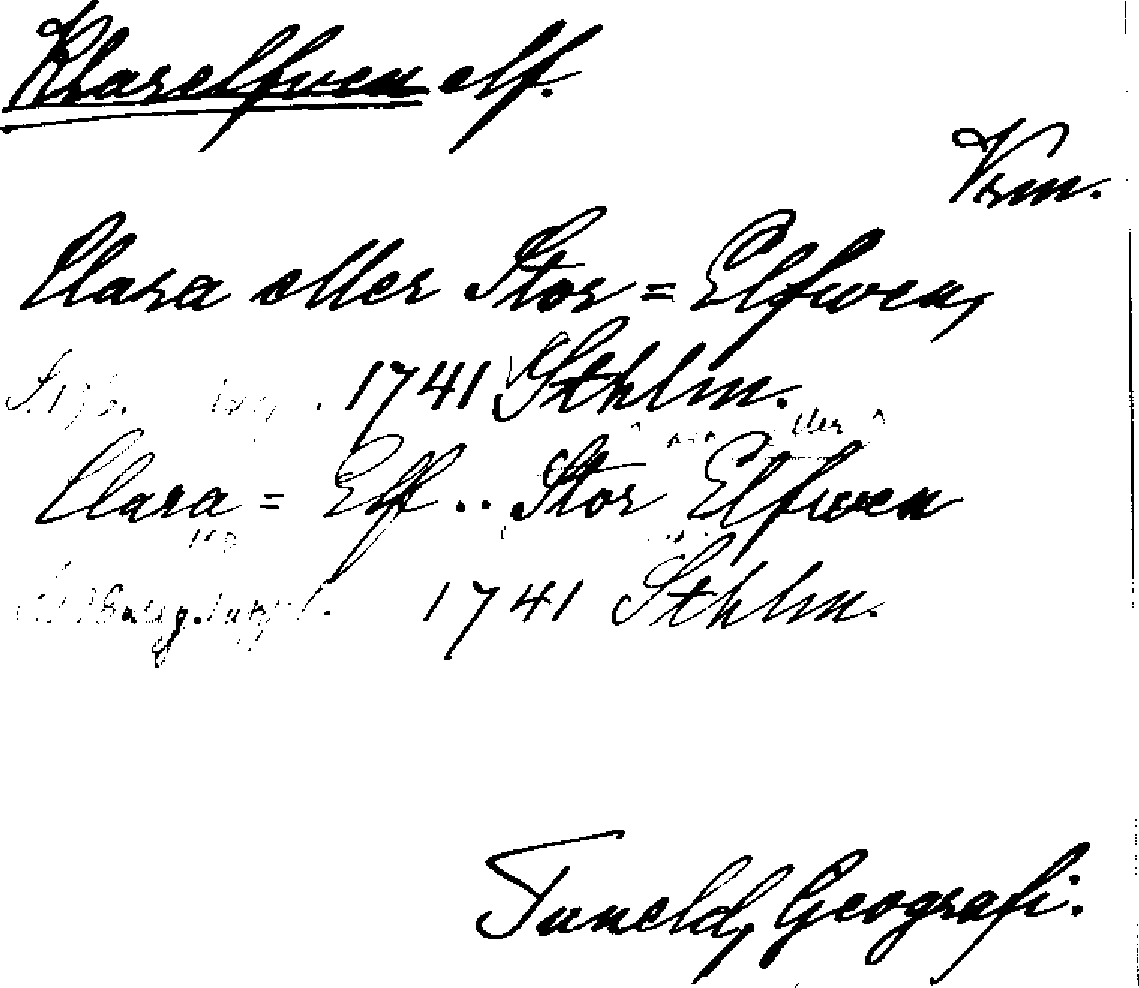 Klarelfven elf.
Vrm.
Clara eller Stor = Elfwen,
1741 Sthlm.
Clara = Elf .. Stor Elfwen
1741 Sthlm.
Tuneld, Geografi.